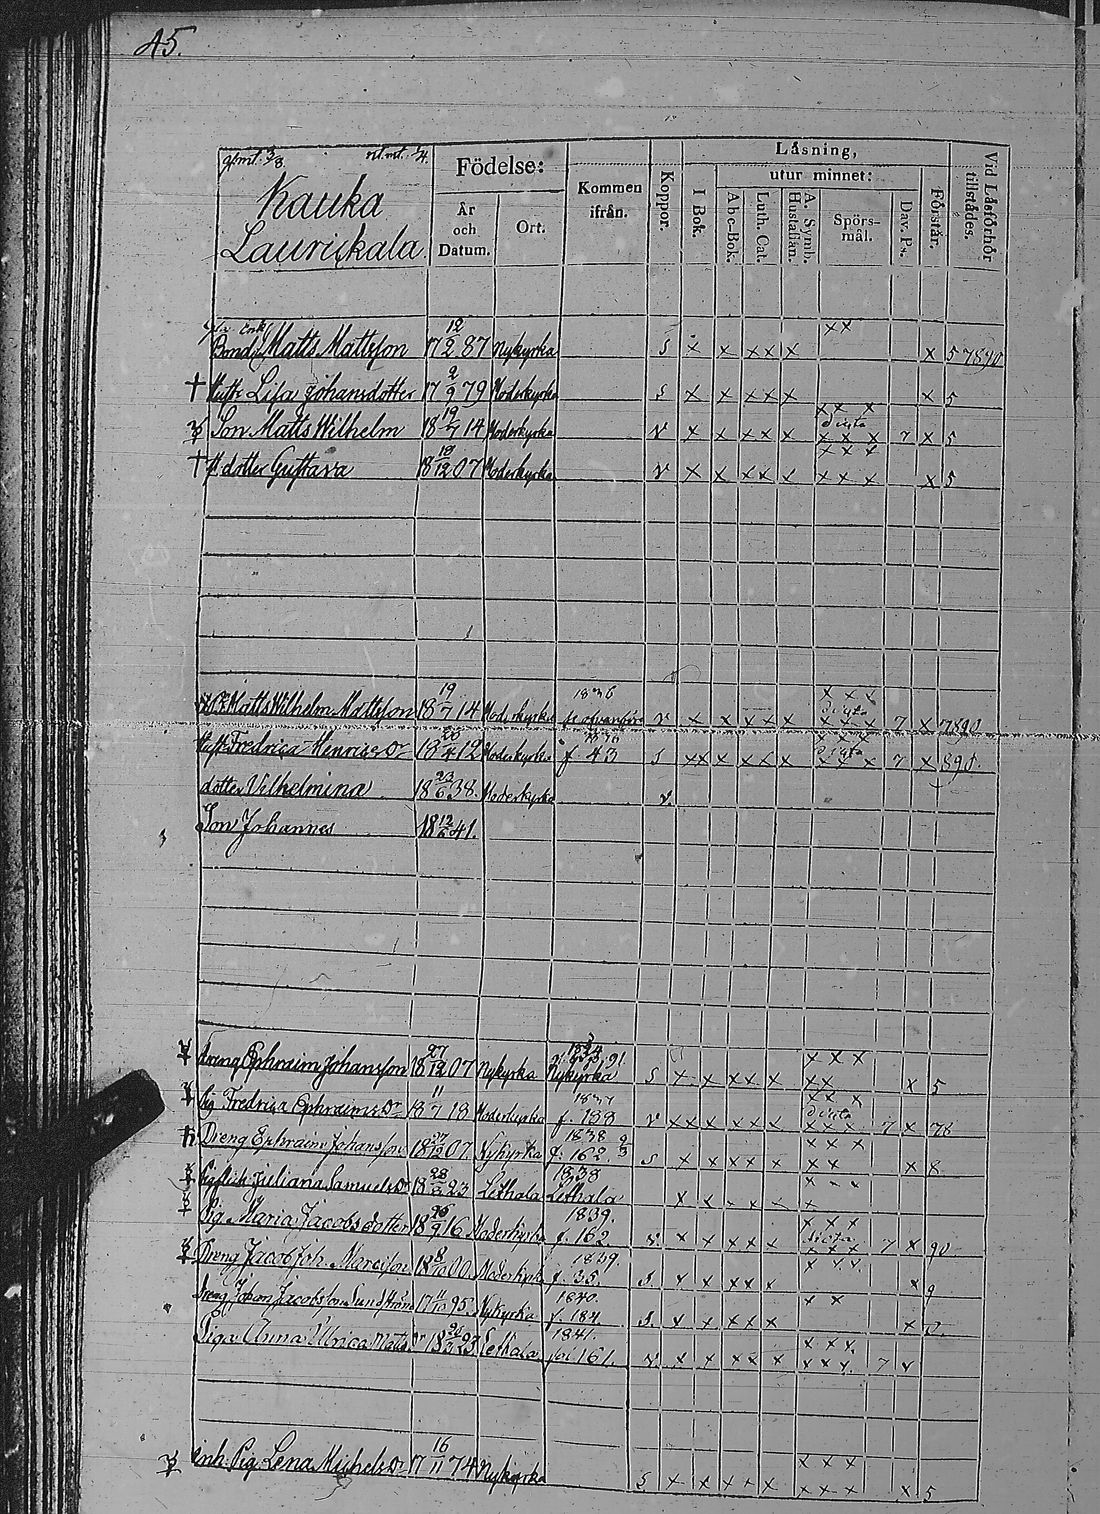 45.
Kauka
Laurickala
Födelse:
År
och
Datum.
Ort.
Kommen
ifrån.
Koppor.
Läsning,
I Bok.
utur minnet:
Abc-Bok.
Luth. Cat.
A. Symb.
Hustaflan.
Spörs-
mål.
Dav. Ps.
Förstår.
Vid Läsförhör
tillstädes.
Enkl.
Bond. Matts Mattsson 17 12/2 87 Nykyrka S x x xx x xx x 5 7890
† Hust. Lisa Johansdotter 17 2/9 79 Moderkyrka S x x xxx x 5
Son Matts Wilhelm 18 19/7 14 Moderkyrka V x x xx x xxx dista xxx 7 x 5
† dotter Gustava 18 12 07 Moderkyrka V x x xx x xxx xxx x 5
Matts Wilhelm Mattsson 18 19/7 14 Moderkyrka 1836 V x x xx x xxx dista xxx 7 x 7890
Hust. Fredrica Henricsdr 18 12 Moderkyrka f. 43 S xx x xx x xxx dista xxx 7 x 890.
dotter Vilhelmina 18 23/6 38. Moderkyrka V.
Son Johannes 18 12/6 41.
dreng Ephraim Johansson 18 27/12 07 Nykyrka Nykyrka S x x xx x xxx xx x 5
Pig. Fredrica Ephraimsdr 18 11/7 18 Moderkyrka 1837 f. 188 V x x xx x xxx dista xxx 7 x 78
Dreng Ephraim Johansson 18 27/12 07. Nykyrka 1838 f. 162. S x x xx x xxx xx x 8
Juliana Samuelsdr 18 28 23 Lethala 1838 Lethala
Pig. Maria Jacobsdotter 18 16 Moderkyrka 1839. f. 162. V x x xx x xxx dista xxx 7 x 90
Dreng Jacob Joh. 18 8/10 00 Moderkyrk. 1839. f. 35. S x x xx x xxx x 9
Dreng Johan Jacobsson Sundström 17 11/10 95. Nykyrka 1840. f. 184. S. x x xx x xx x 0.
Piga Anna Ulrica Matsdr 18 23 Lethala 1841. fol 161. V x x xx x xxx xxx 7 x
inh. Pig. Lena Michelsdr 17 16/11 74 Nykyrka S x x xx x xxx xxx x 5